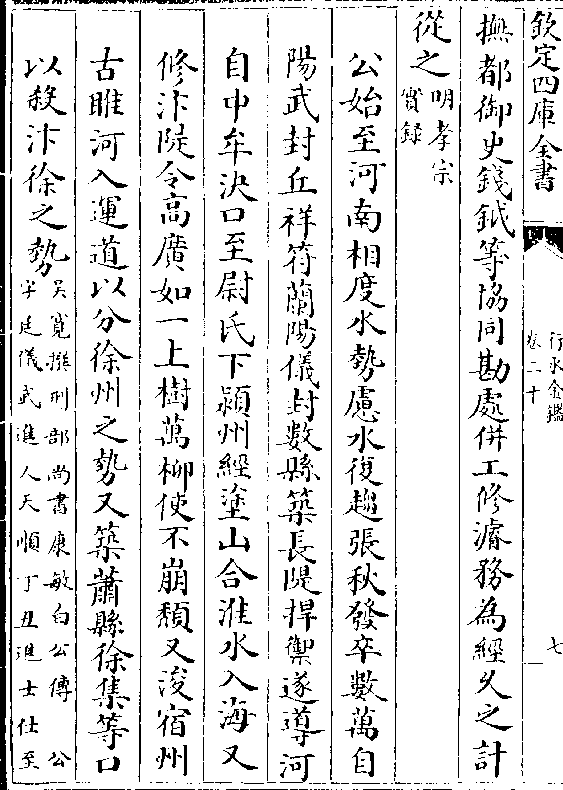 欽定四庫全書
行水金鑑
卷二十
七
撫都御史錢鉞等協同勘處併工修濬務為經久之計
從之明孝宗實録
公始至河南相度水勢慮水復趨張秋發卒數萬自
陽武封丘祥符蘭陽儀封數縣築長隄捍禦遂導河
自中牟決口至尉氏下潁州經塗山合淮水入海又
修汴隄令高廣如一上樹萬柳使不崩頹又浚宿州
古睢河入運道以分徐州之勢又築蕭縣徐集等口
以殺汴徐之勢吳寛撰刑部尚書康敏白公傳 公字廷儀武進人天順丁丑進士仕至